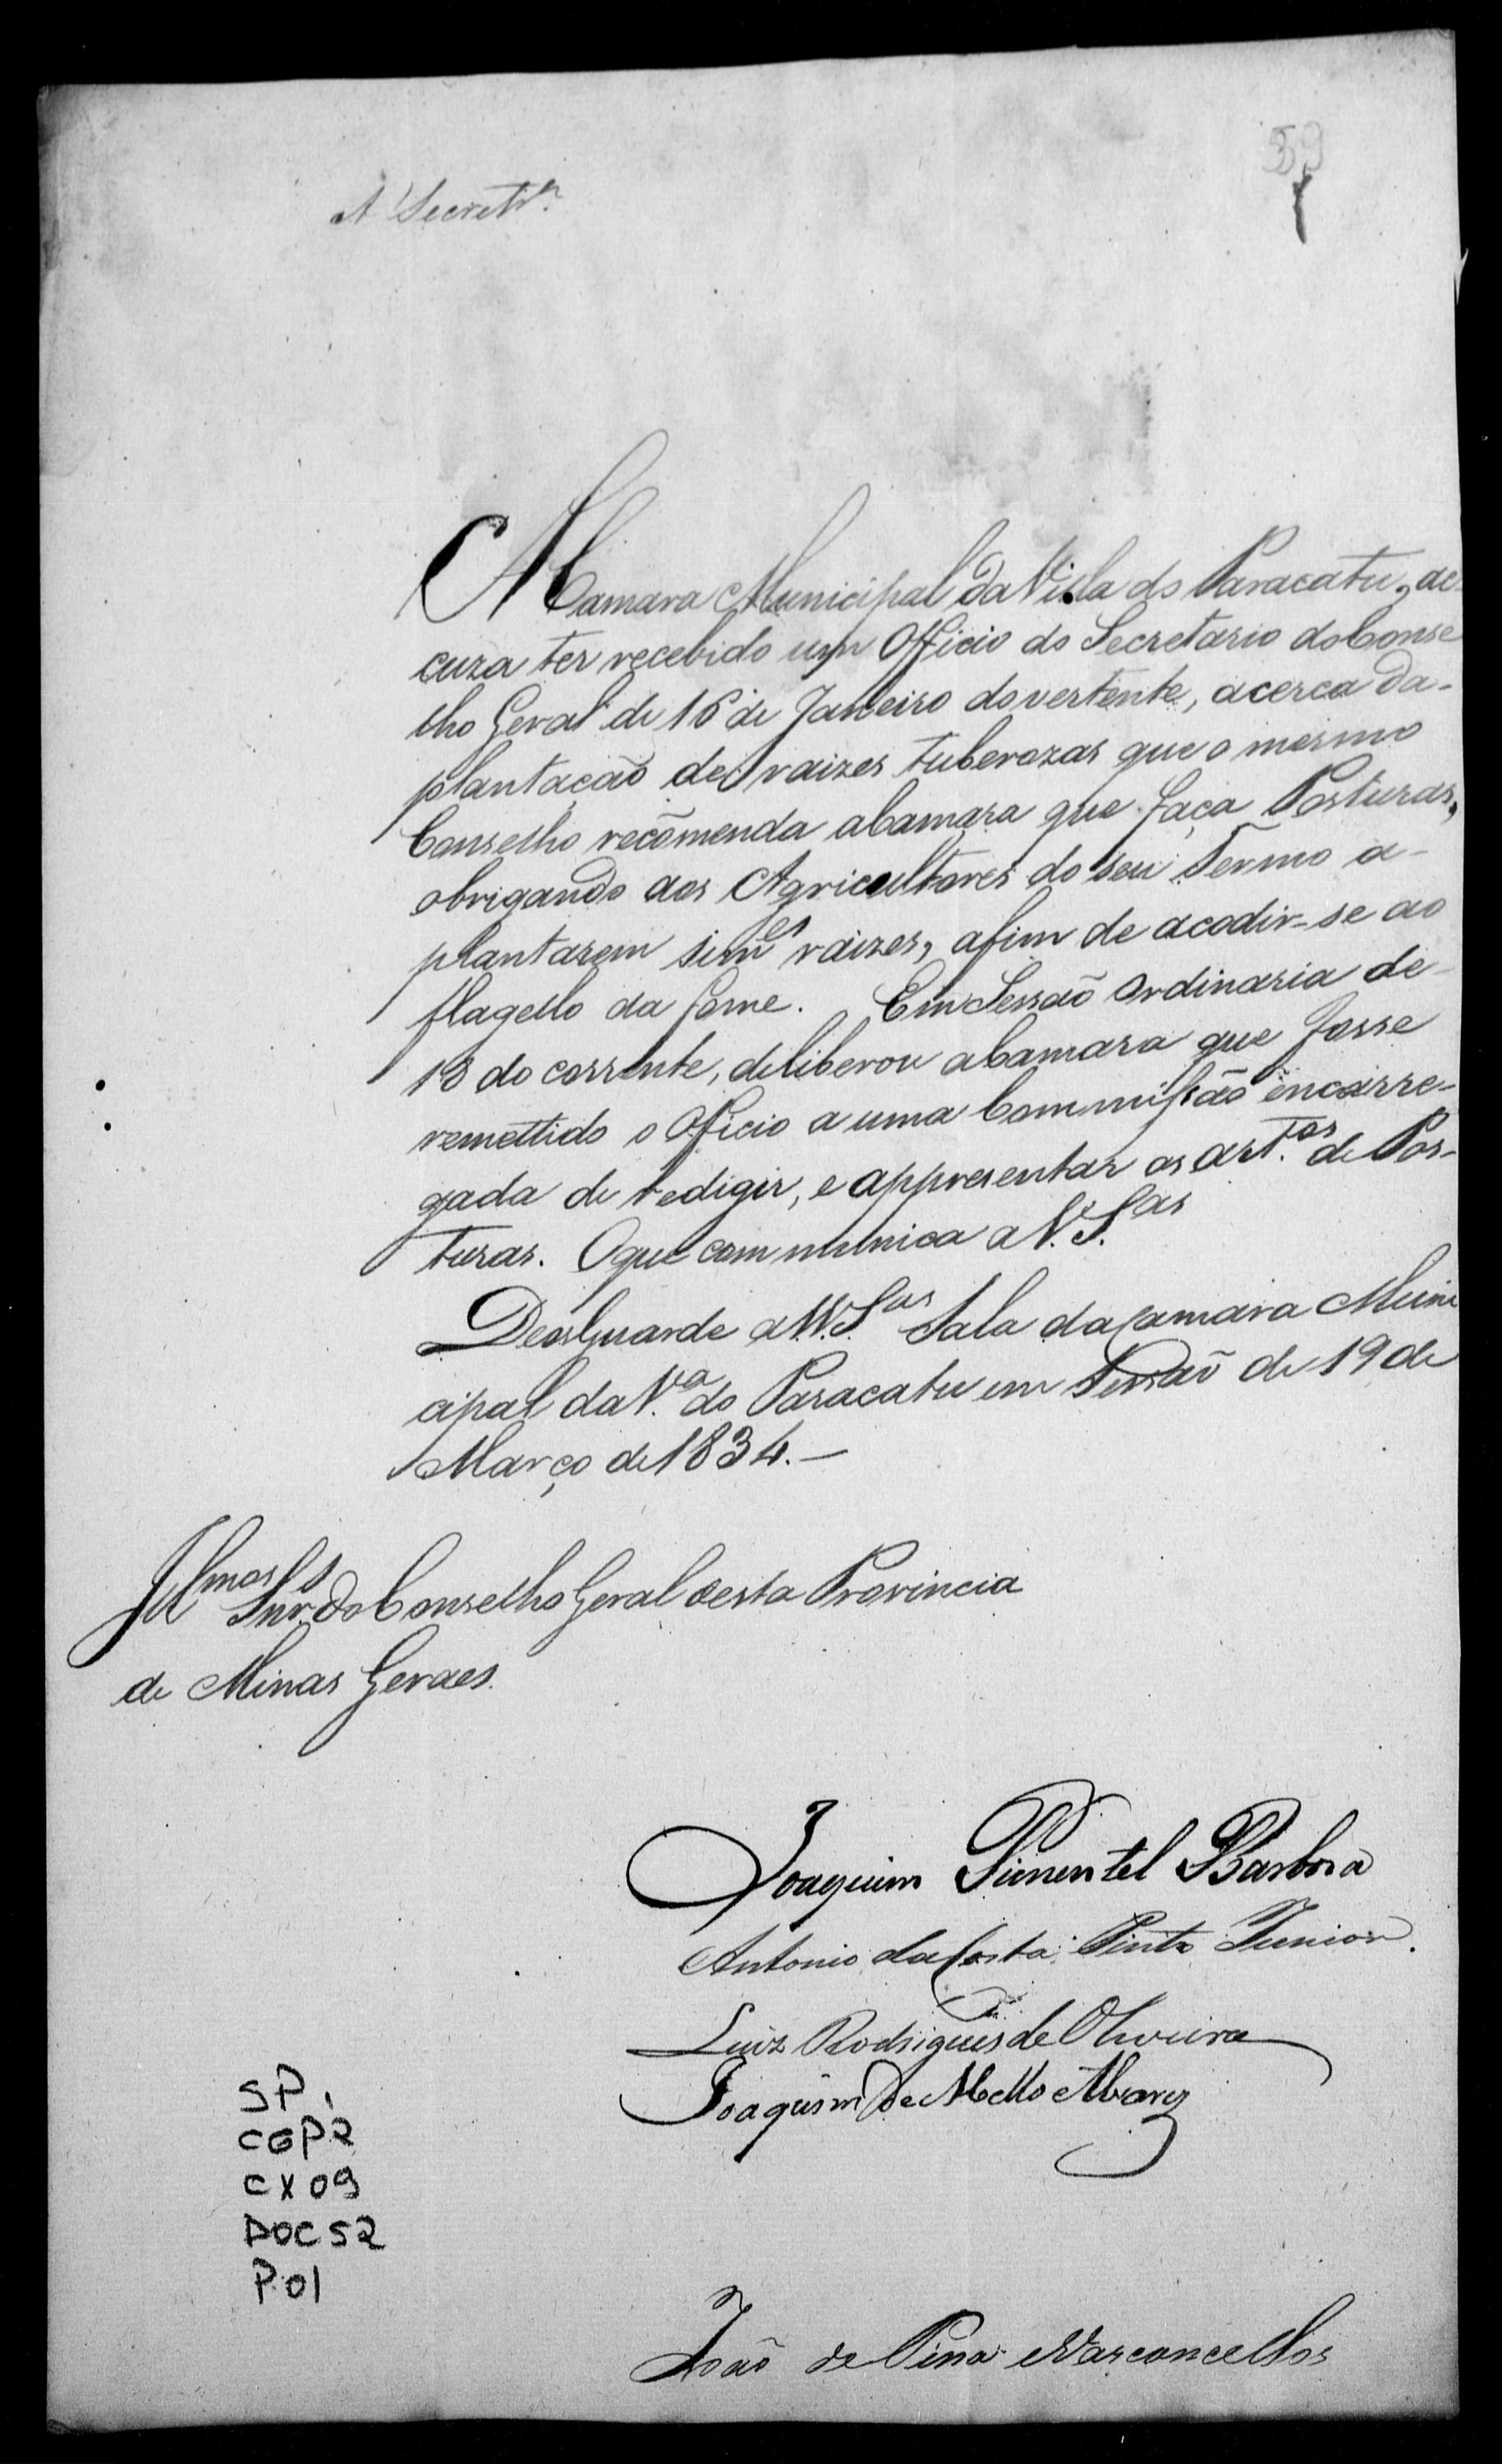 59
A Secretrª
A Camara Municipal da Villa do Paracatu, ac-
cuza ter recebido um Officio do Secretario do Conse
lho Geral de 16 de Janeiro do vertente, acerca da-
plantação de raizes tuberozas que o mesmo
Conselho recõmenda a Camara que faça Posturas,
obrigando aos Agricultores do seu Termo a-
plantarem simes raizes, afim de acodir-se ao
flagello da fome. Em Sessaõ Ordinaria de-
18 do corrente, deliberou a Camara que fosse
remettido o Officio a uma Commissaõ incarre-
gada de redigir, e appresentar os art.os de Pos-
turas. O que communica a V. S.as
Deos Guarde a VV. S.as Sala da Camara Muni
cipal da V.a do Paracatu em Sessaõ de 19 de
Março de 1834.—
Illmos Snrs do Conselho Geral desta Provincia
de Minas Geraes.
Joaquim Pimentel Barbosa
Antonio da Costa Pinto Junior.
Luiz Rodrigues de Oliveira
Joaquim de Mello Alvarez
SP,
CGP2
CX 09
DOC 52
P.01
João de Pina Vasconcellos